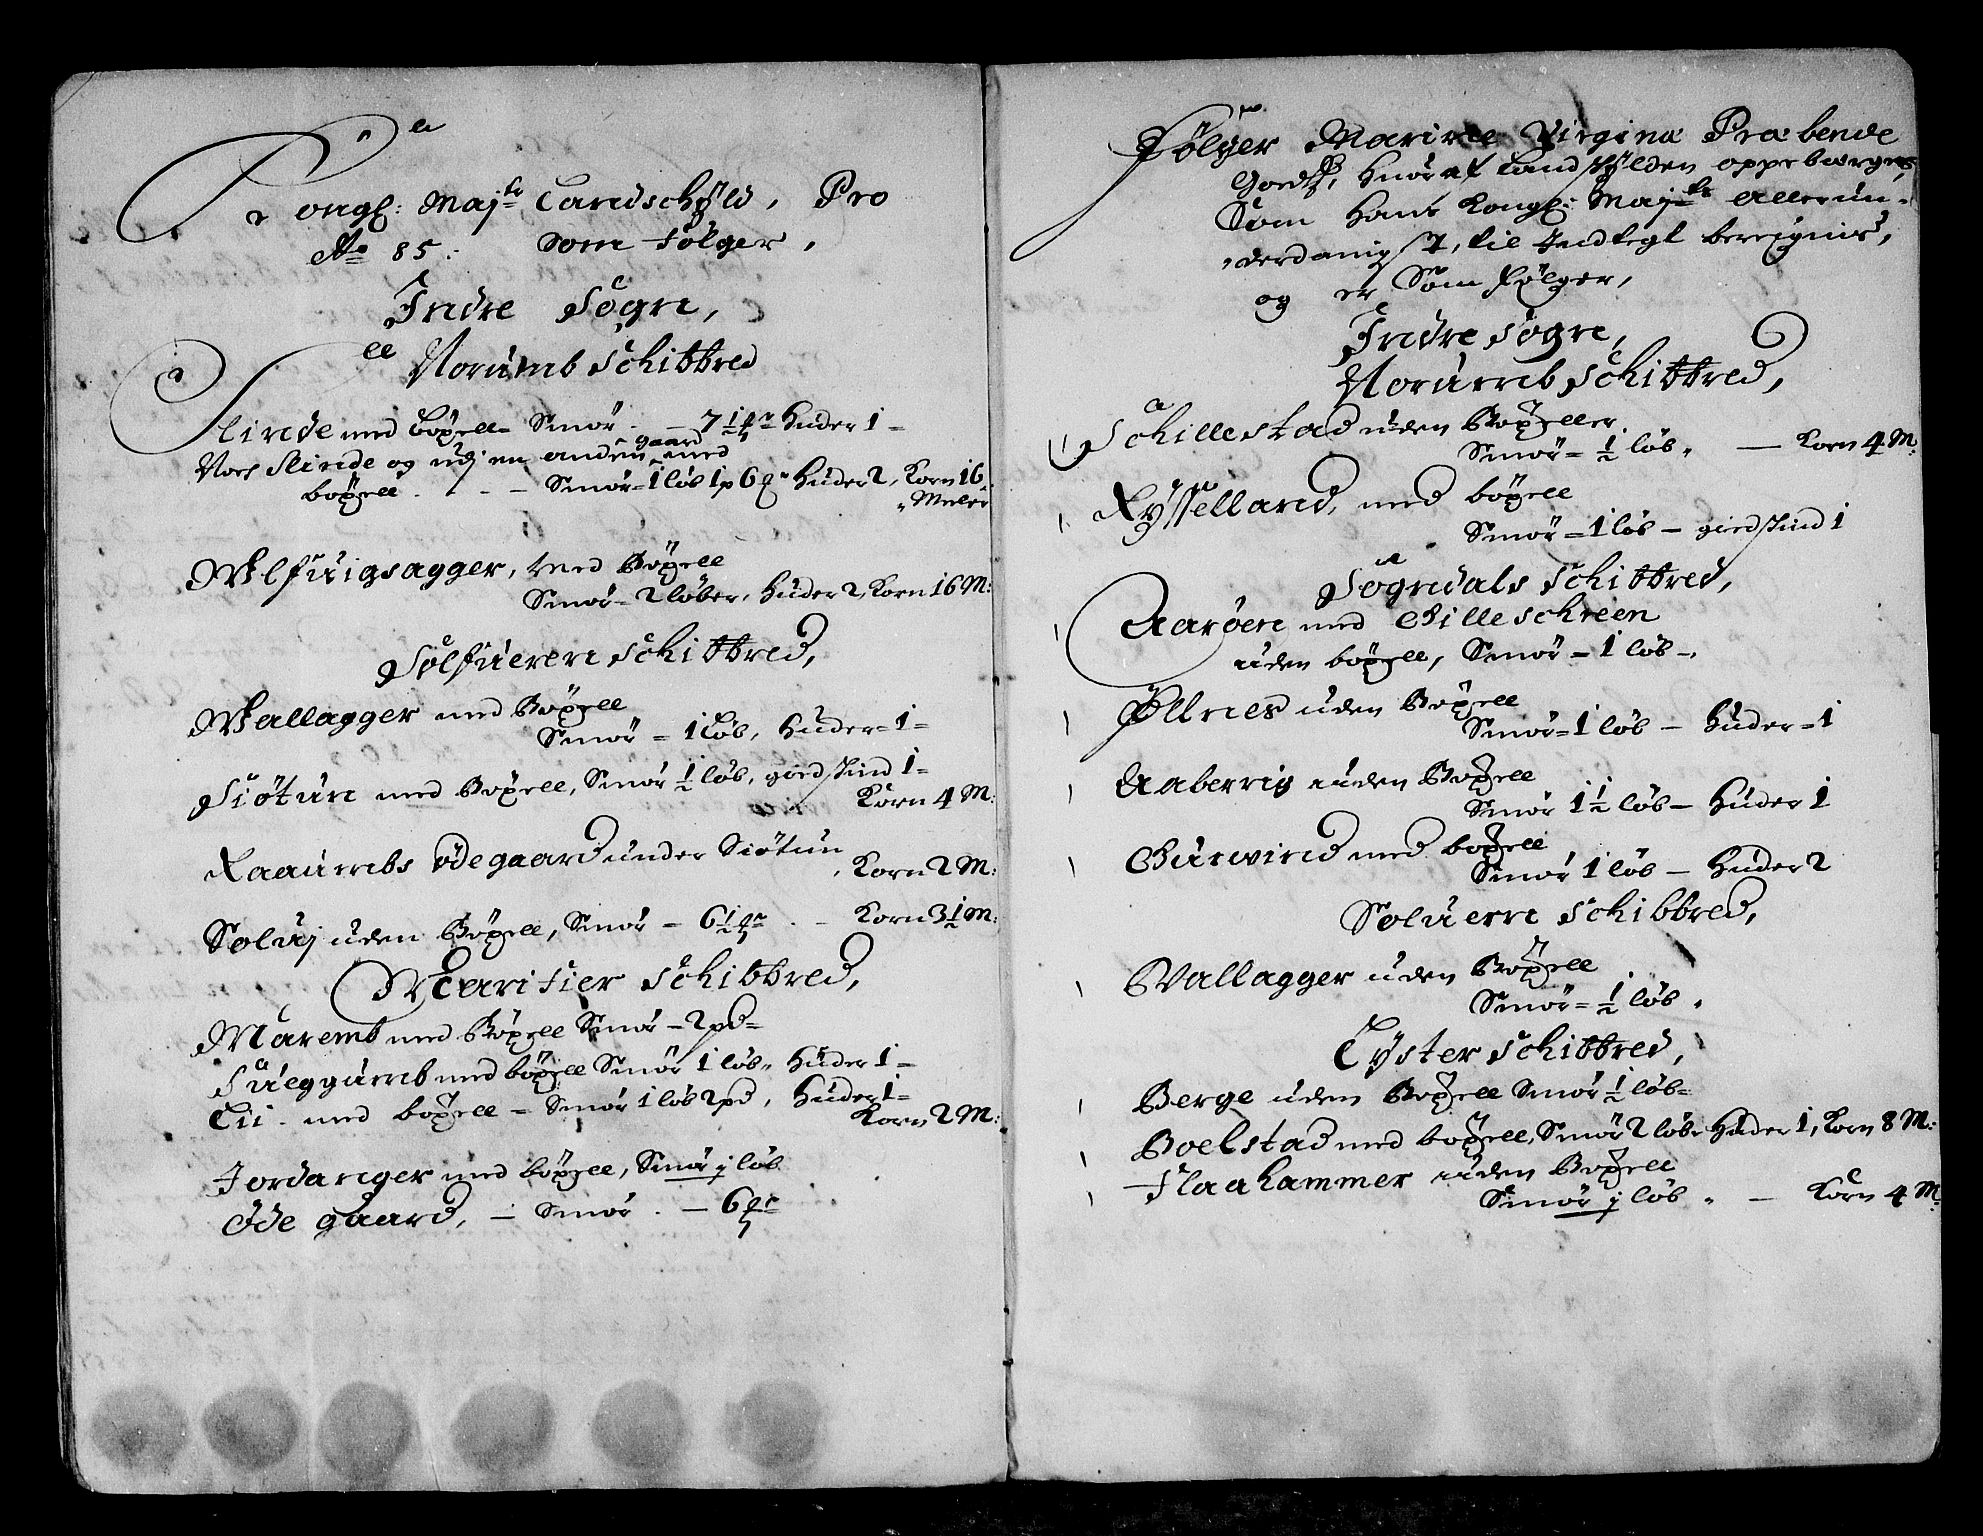 Kongl: Maj:ts Landschÿld, Pro
Ao 85: Som følger,
Indre Sogn,
Norumb Schibbred
Slinde med böxell Smör — 7 1/2 Huder 1 =
Noer Slinde og udj en anden gaard med
böxell - - Smör = 1 löb 1 p 6 Huder 2, Korn 16
Meler
Wlfuigsagger, Med Böxell
Smör = 2 löber, Huder 2, Korn 16 M:
Solfueren Schibbred,
Wallagger med Böxell
Smör = 1 Löb, Huder = 1 =
Siötun med Böxell, Smör 1/2 löb, giedskind 1 =
Korn 4 M:
Raaumbs ödegaard under Siötun
Korn 2 M:
Soluj uden Böxell, Smör = 6 1/2 - Korn 3 1/2 M:
Marifier Schibbred,
Maremb med Böxell Smör = 2 pd =
Fueggumb med böxell Smör 1 löb, Huder 1 =
Lii med böxell = Smör 1 löb 2 pd, Huder 1 =
Korn 2 M:
Jordanger med böxell, Smör j löb
Öde gaard, — Smör — 6
Fölger Mariæ Virginæ Præbende
Godtz, Huoraf Landskÿlden oppebærges,
Som Hans Kongl: Maj:ts Allerun-
derdanigst, til Indtegt beregnis,
og er Som Fölger,
Indre Sogn,
Norumb Schibbred,
Schillestad uden Böxell
Smör = 1/2 löb, — Korn 4 M:
Rÿsselland, med böxell
Smör = 1 löb — giedskind 1
Sogndals Schibbred,
Aaröen med Gilleschreen
uden böxell, Smör = 1 löb =
Ölnes uden Böxell
Smör = 1 löb — Huder = 1
Aaberrig uden Böxell
Smör 1 1/2 löb — Huder 1
Gurvind med böxell
Smör 1 löb — Huder 2
Soluern Schibbred,
Wallagger uden Böxell
Smör = 1/2 löb,
Lÿster Schibbred,
Berge uden Böxell Smör 1/2 löb =
Boelstad med böxell, Smör 2 löb, Huder 1, Korn 8 M:
Flaahammer uden Böxell
Smör j löb, — Korn 4 M: